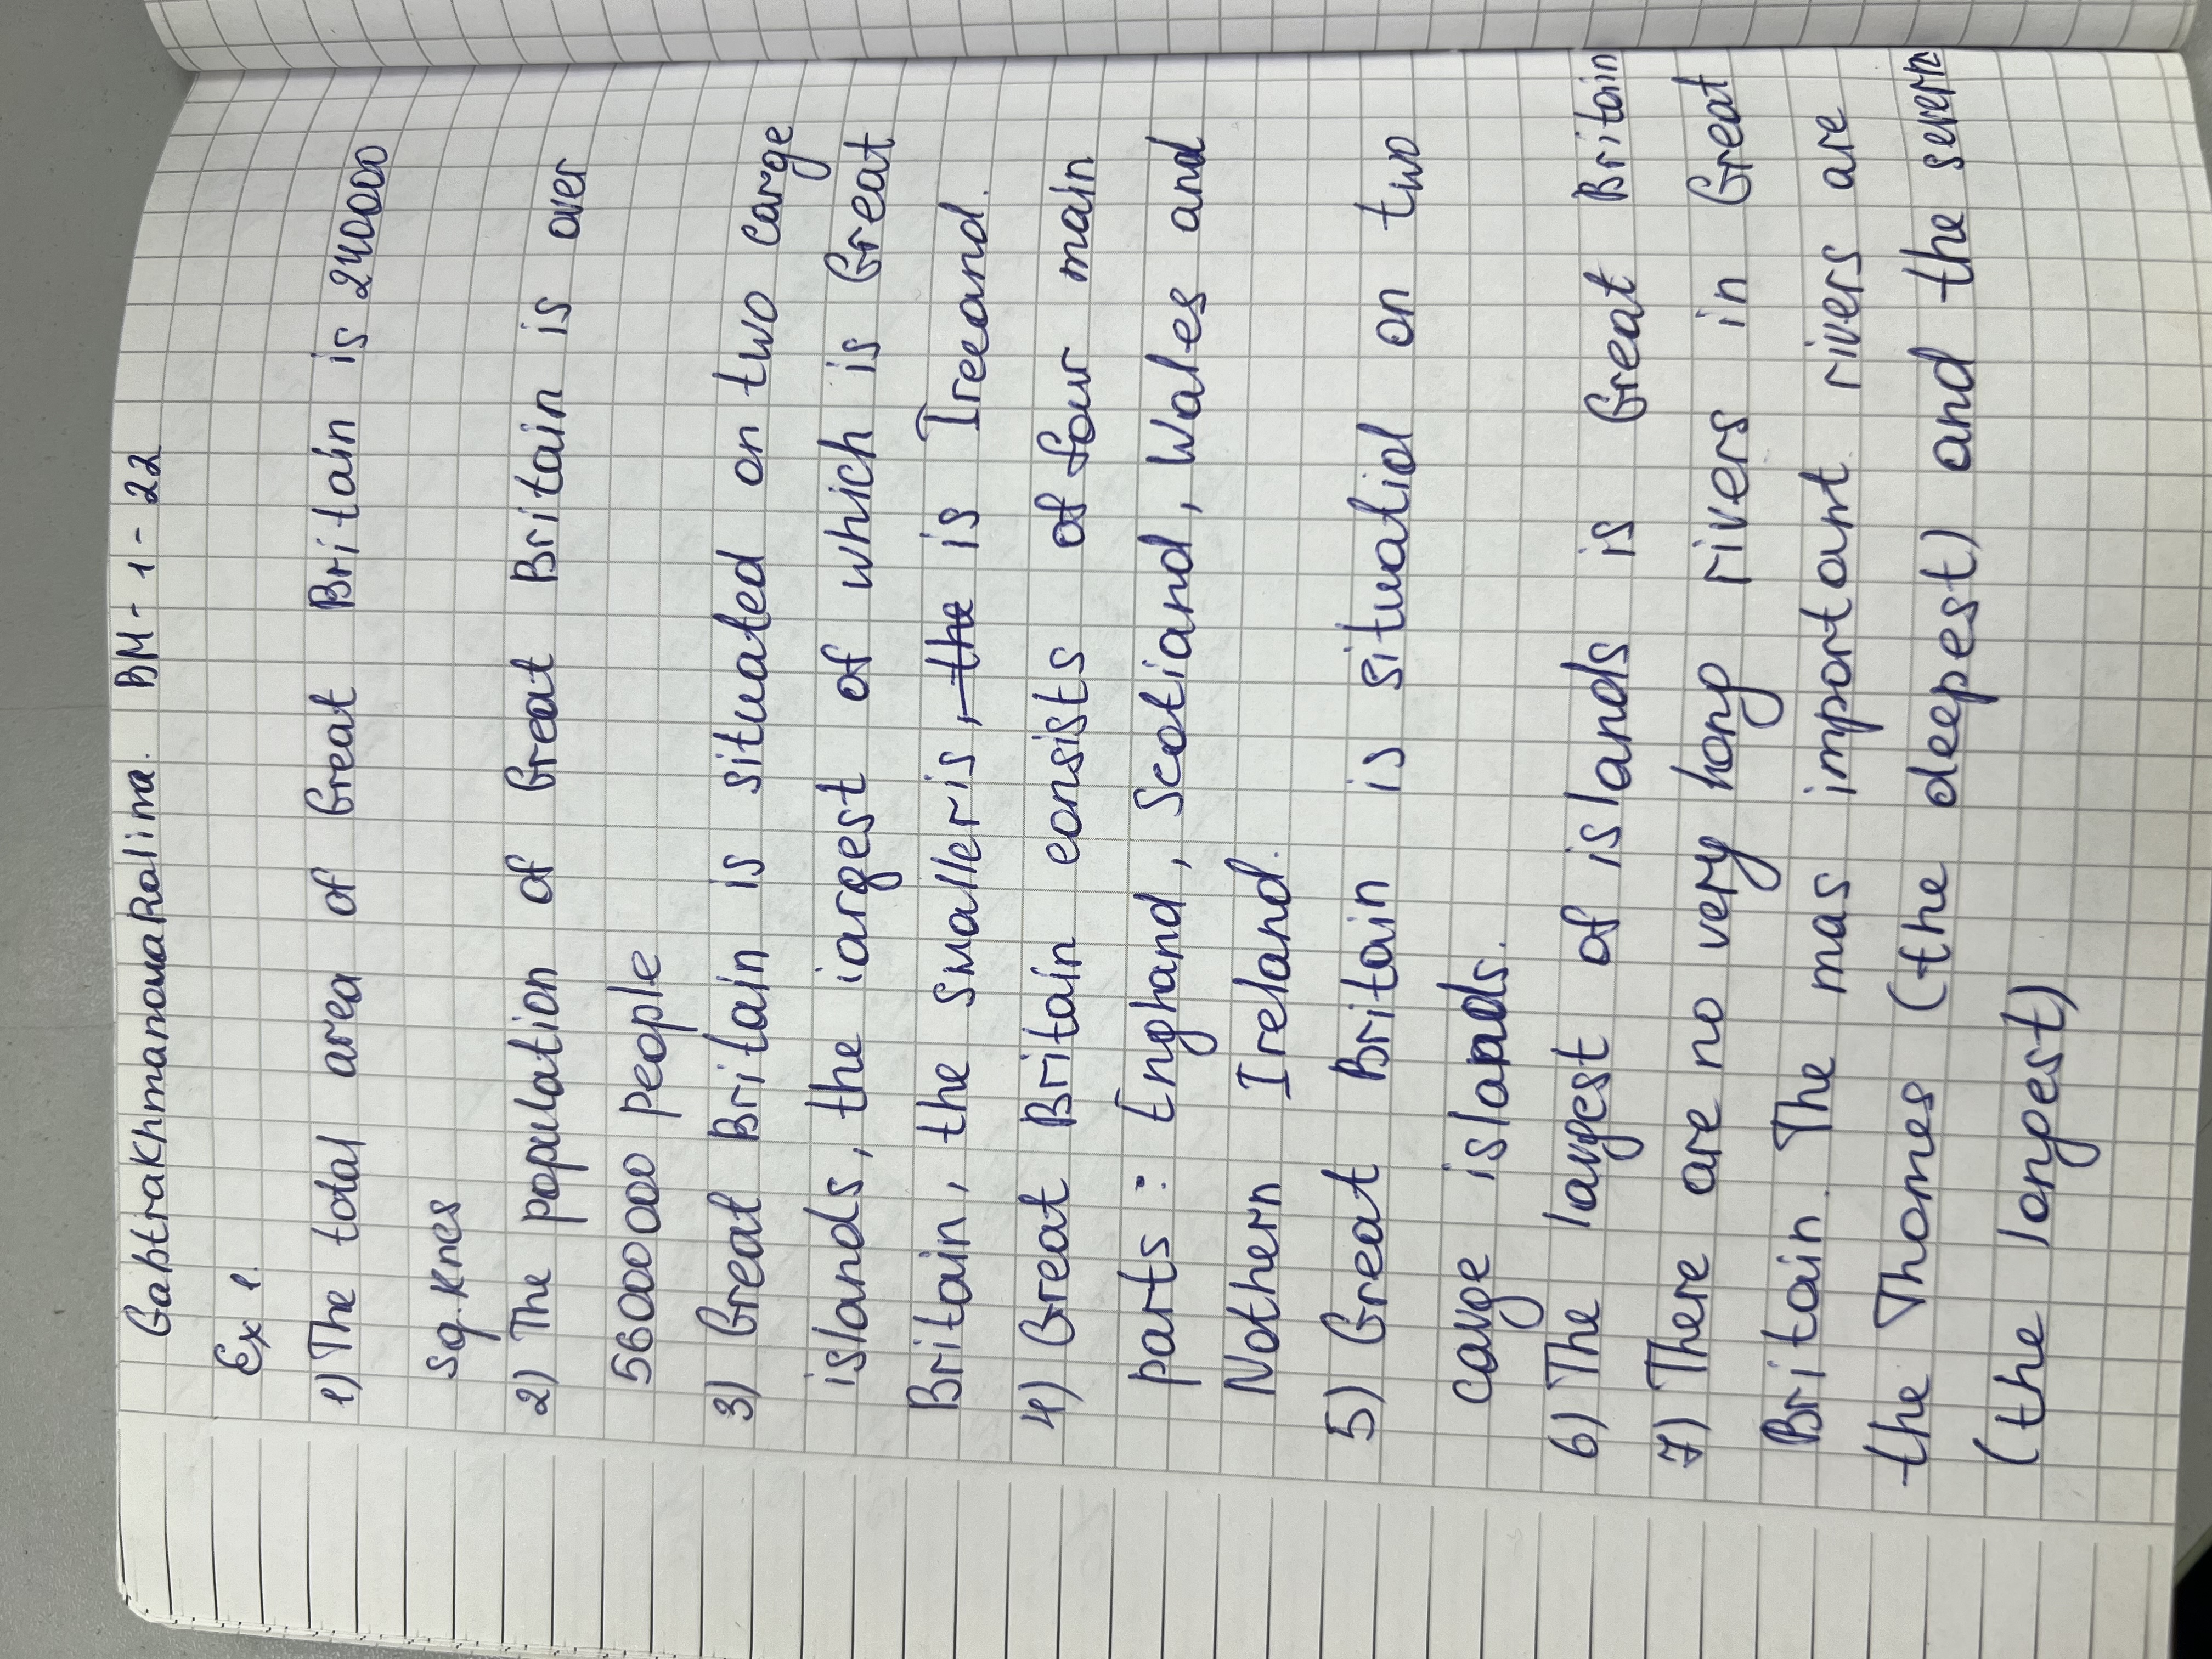 Gabtrakhmanova Ralina. BM-1-22
Ex 1.
1) The total area of Great Britain is 240000
sq. kmes
2) The population of Great Britain is over
56000000 people
3) Great Britain is situated on two carge
islands, the iargest of which is Great
Britain, the smaller is, the is Ireeand.
4) Great Britain consists of four main
parts: Enghand, Scotiand, Wales and
Nothern Ireland.
5) Great Britain is situatiol on two
carge islands.
6) The largest of islands is Great Britain
7) There are no very hong rivers in Great
Britain. The mas important rivers are
the Thomes (the deepest) and the severn
(the longest)